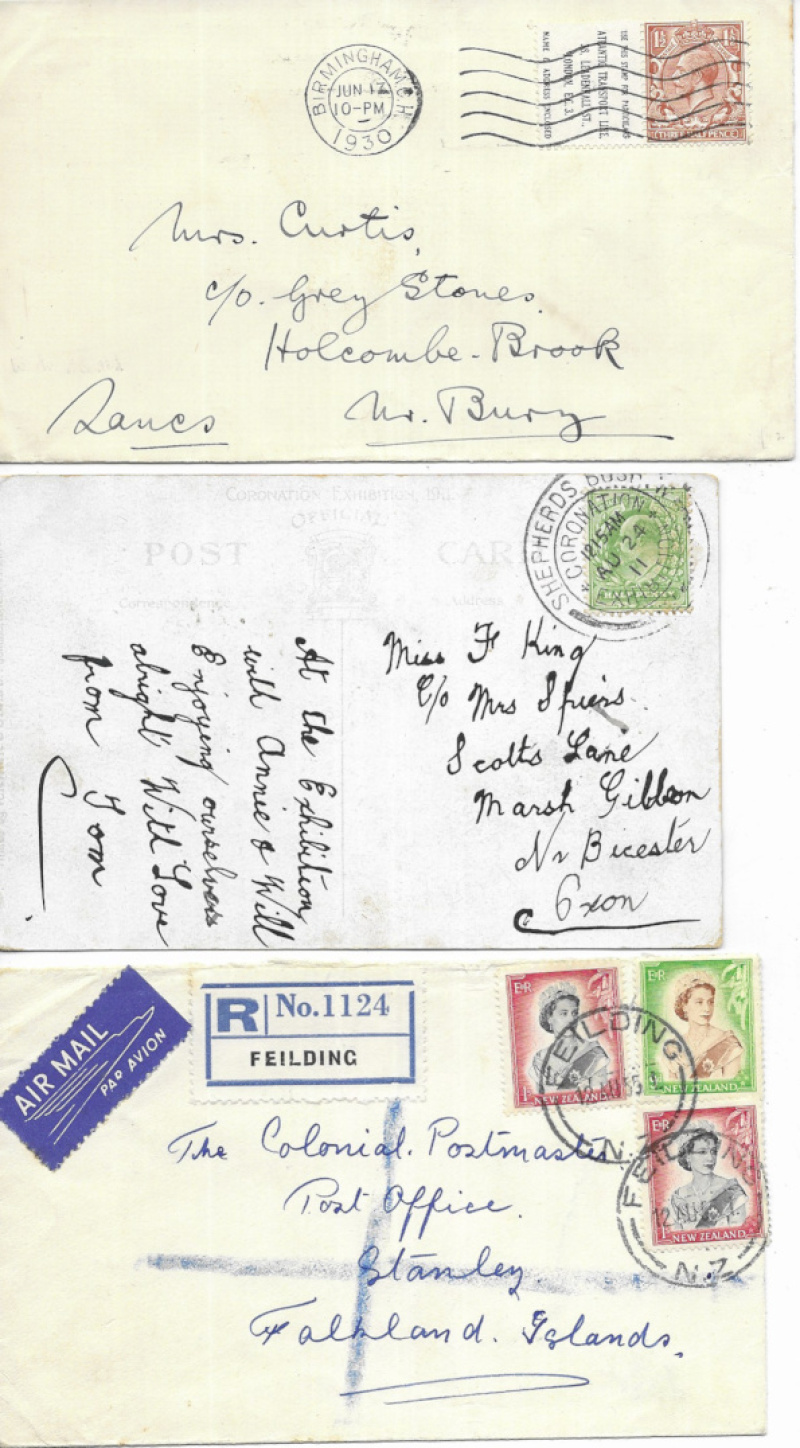 BIRMINGHAM. C.H.
JUN 17
10-PM
1930
USE THIS STAMP FOR PARTICULARS
ATLANTIC TRANSPORT LINE
38, LEADENHALL ST.
LONDON, E.C. 3.
NAME & ADDRESS ENCLOSED
1½ 1½
THREE HALFPENCE
Mrs. Curtis,
c/o. Grey Stones.
Holcombe-Brook
Nr. Bury
Lancs
CORONATION EXHIBITION, 1911.
OFFICIAL
POST CARD
Correspondence Address
SHEPHERDS BUSH
CORONATION
12.15 AM
AU 24
11
HALFPENNY
Miss F King
C/o Mrs Spiers
Scotts Lane
Marsh Gibbon
Nr Bicester
Oxon
At the Exhibition
with Annie & Will
Enjoying ourselves
alright With Love
from Tom
AIR MAIL
PAR AVION
R No.1124
FEILDING
E R
NEW ZEALAND
E R
NEW ZEALAND
E R
NEW ZEALAND
FEILDING
N.Z
FEILDING
12 AU
N.Z
The Colonial Postmaster
Post Office.
Stanley.
Falkland. Islands.